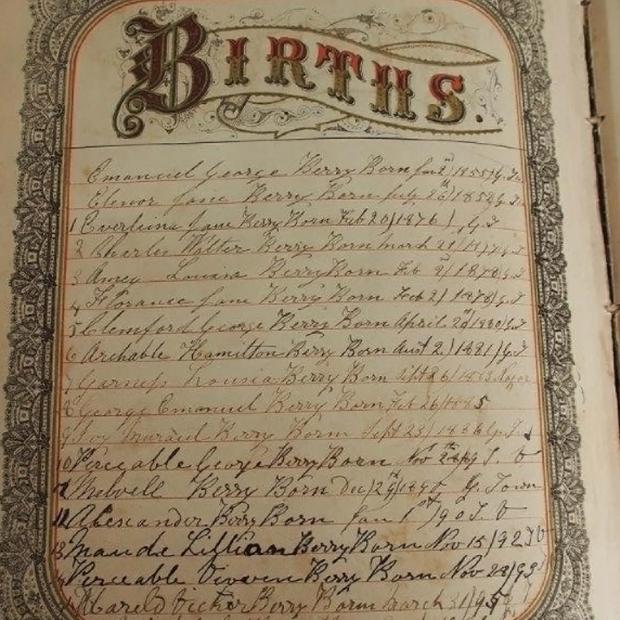 BIRTHS.
Emanuel George Berry Born Jan 2nd 1855 G. T.
Elenor Jane Berry Born July 26th 1852 G. T.
1 Everlina Jane Berry Born Feb 20) 1876) G. T
2 Charles Walter Berry Born march G. T
3 Louisia Berry Born Feb 2) 1878) G. T
4 Florance Jane Berry Born Feb 2) 1878) G. T
5 Clemford George Berry Born April 1880) G. T
6 Archable Hamilton Berry Born Aust 2.) 1881) G. T
7 Lousia Berry Born Sept 26) 1883
8 George Emanuel Berry Born Feb 26) 1885
9 Ivy Berry Born Sept 23) 1886 G. T
10 Perceable George Berry Born Nov 28
Melvell Berry Born Dec) 29) G. Town
Alexcander Berry Born Jan 1st) 90
13 Maude Lillian Berry Born Nov 15) 92
Perceable Vivven Berry Born Nov 28) 93
Hareld Berry Born march 31) 95